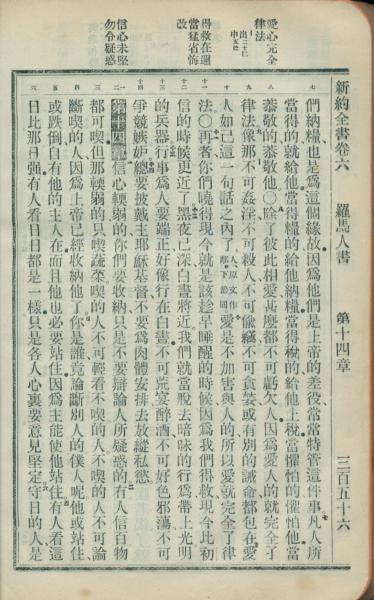 愛心完全
律法
得救在邇
當猛省悔
改
信心未堅
勿令疑惑
新約全書卷六　羅馬人書　第十四章　三百五十六
七
們納糧也是爲這個緣故因爲他們是上帝的差役常常特管這件事凡人所
當得的就給他當得糧的給他納糧當得稅的給他上稅當懼怕的懼怕他當
八
恭敬的恭敬他〇除了彼此相愛甚麼都不可虧欠人因爲愛人的就完全了
九
律法像那不可姦淫不可殺人不可偷竊不可貪婪或有別的誡命都包在愛
十
人如己這一句話之內了人原文作鄰下節同愛是不加害與人的所以愛就完全了律
十一
法〇再者你們曉得現今就是該趁早睡醒的時候因爲我們得救現今比初
十二
信的時候更近了黑夜已深白晝將近我們就當脫去暗昧的行爲帶上光明
十三
的兵器行事爲人要端正好像行在白晝不可荒宴醉酒不可好色邪蕩不可
十四
爭競嫉妒總要披戴主耶穌基督不要爲肉體安排去放縱私慾
一二
第十四章信心輭弱的你們要收納只是不要辯論人所疑惑的有人信百物
三
都可喫但那輭弱的只喫蔬菜喫的人不可輕看不喫的人不喫的人不可論
四
斷喫的人因爲上帝已經收納他了你是誰竟論斷別人的僕人呢他或站住
五
或跌倒自有他的主人在而且他也必要站住因爲主能使他站住有人看這
六
日比那日強有人看日日都是一樣只是各人心裏要意見堅定守日的人是